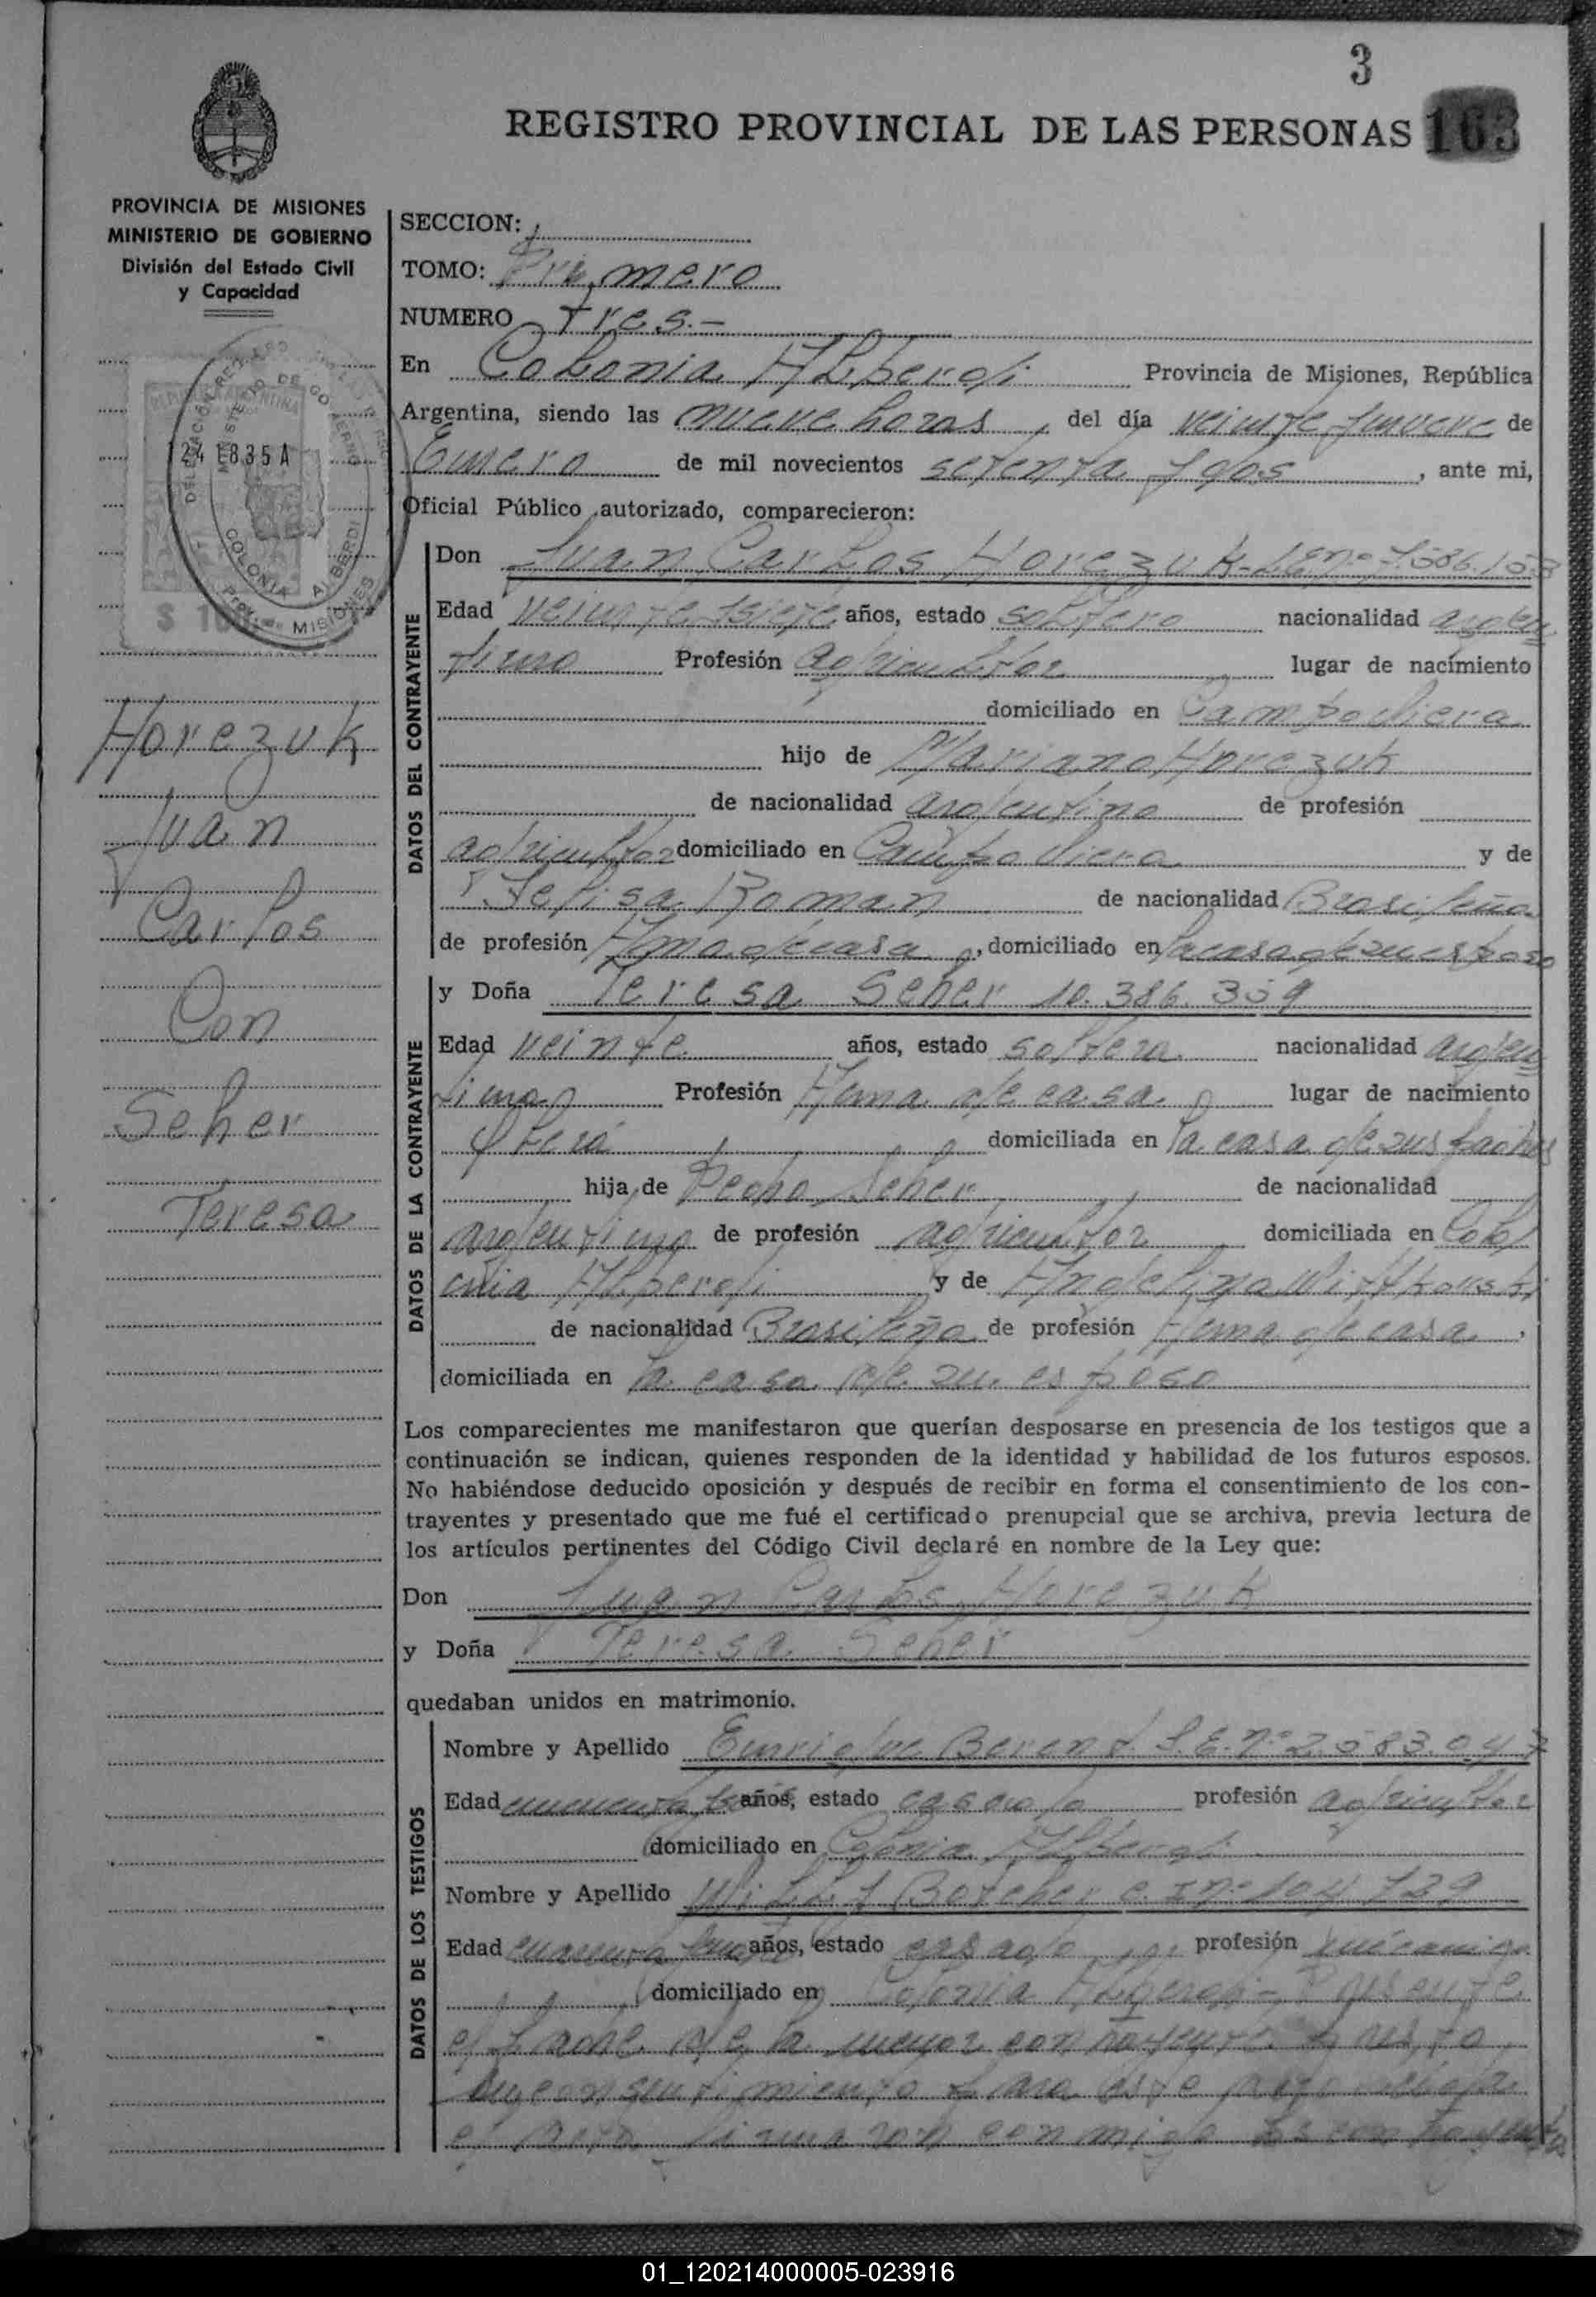 3
REGISTRO PROVINCIAL DE LAS PERSONAS 163
PROVINCIA DE MISIONES
MINISTERIO DE GOBIERNO
División del Estado Civil
y Capacidad
124 1835 A
COLONIA ALBERDI
MISIONES
Horezuk
Juan
Carlos
Con
Seher
Teresa
SECCION:
TOMO: Primero
NUMERO Tres.-
En Colonia Alberdi Provincia de Misiones, República
Argentina, siendo las nueve horas, del día veinte y nueve de
Enero de mil novecientos setenta y dos, ante mi,
Oficial Público autorizado, comparecieron:
DATOS DEL CONTRAYENTE
Don Juan Carlos Horezuk - L.E. nº 7.586.153
Edad veinte y siete años, estado soltero nacionalidad argen
tino Profesión agricultor lugar de nacimiento
domiciliado en Campo Viera
hijo de Mariano Horezuk
de nacionalidad argentino de profesión
agricultor domiciliado en Campo Viera y de
Felisa Roman de nacionalidad Brasileña
de profesión Ama de casa, domiciliado en la casa de zu esposo
DATOS DE LA CONTRAYENTE
y Doña Teresa Seher 10.386.359
Edad veinte años, estado soltera nacionalidad argen
tina Profesión Ama de casa lugar de nacimiento
Oberá domiciliada en la casa de zus padres
hija de Pedro Seher de nacionalidad
argentino de profesión agricultor domiciliada en Colo
nia Alberdi y de Angelina
de nacionalidad Brasileña de profesión Ama de casa,
domiciliada en la casa de zu esposo
Los comparecientes me manifestaron que querían desposarse en presencia de los testigos que a
continuación se indican, quienes responden de la identidad y habilidad de los futuros esposos.
No habiéndose deducido oposición y después de recibir en forma el consentimiento de los con-
trayentes y presentado que me fué el certificado prenupcial que se archiva, previa lectura de
los artículos pertinentes del Código Civil declaré en nombre de la Ley que:
Don Juan Carlos Horezuk
y Doña Teresa Seher
quedaban unidos en matrimonio.
DATOS DE LOS TESTIGOS
Nombre y Apellido Enrique Berend L.E. nº 2.583.047
Edad años, estado casado profesión agricultor
domiciliado en Colonia Alberdi
Nombre y Apellido Willy Botcher nº 104 729
Edad años, estado casado profesión mécanico
domiciliado en Colonia Alberdi - Presente
el padre de la menor contrayente
su consentimiento para este
el acto firmaron conmigo los contrayentes
01_120214000005-023916